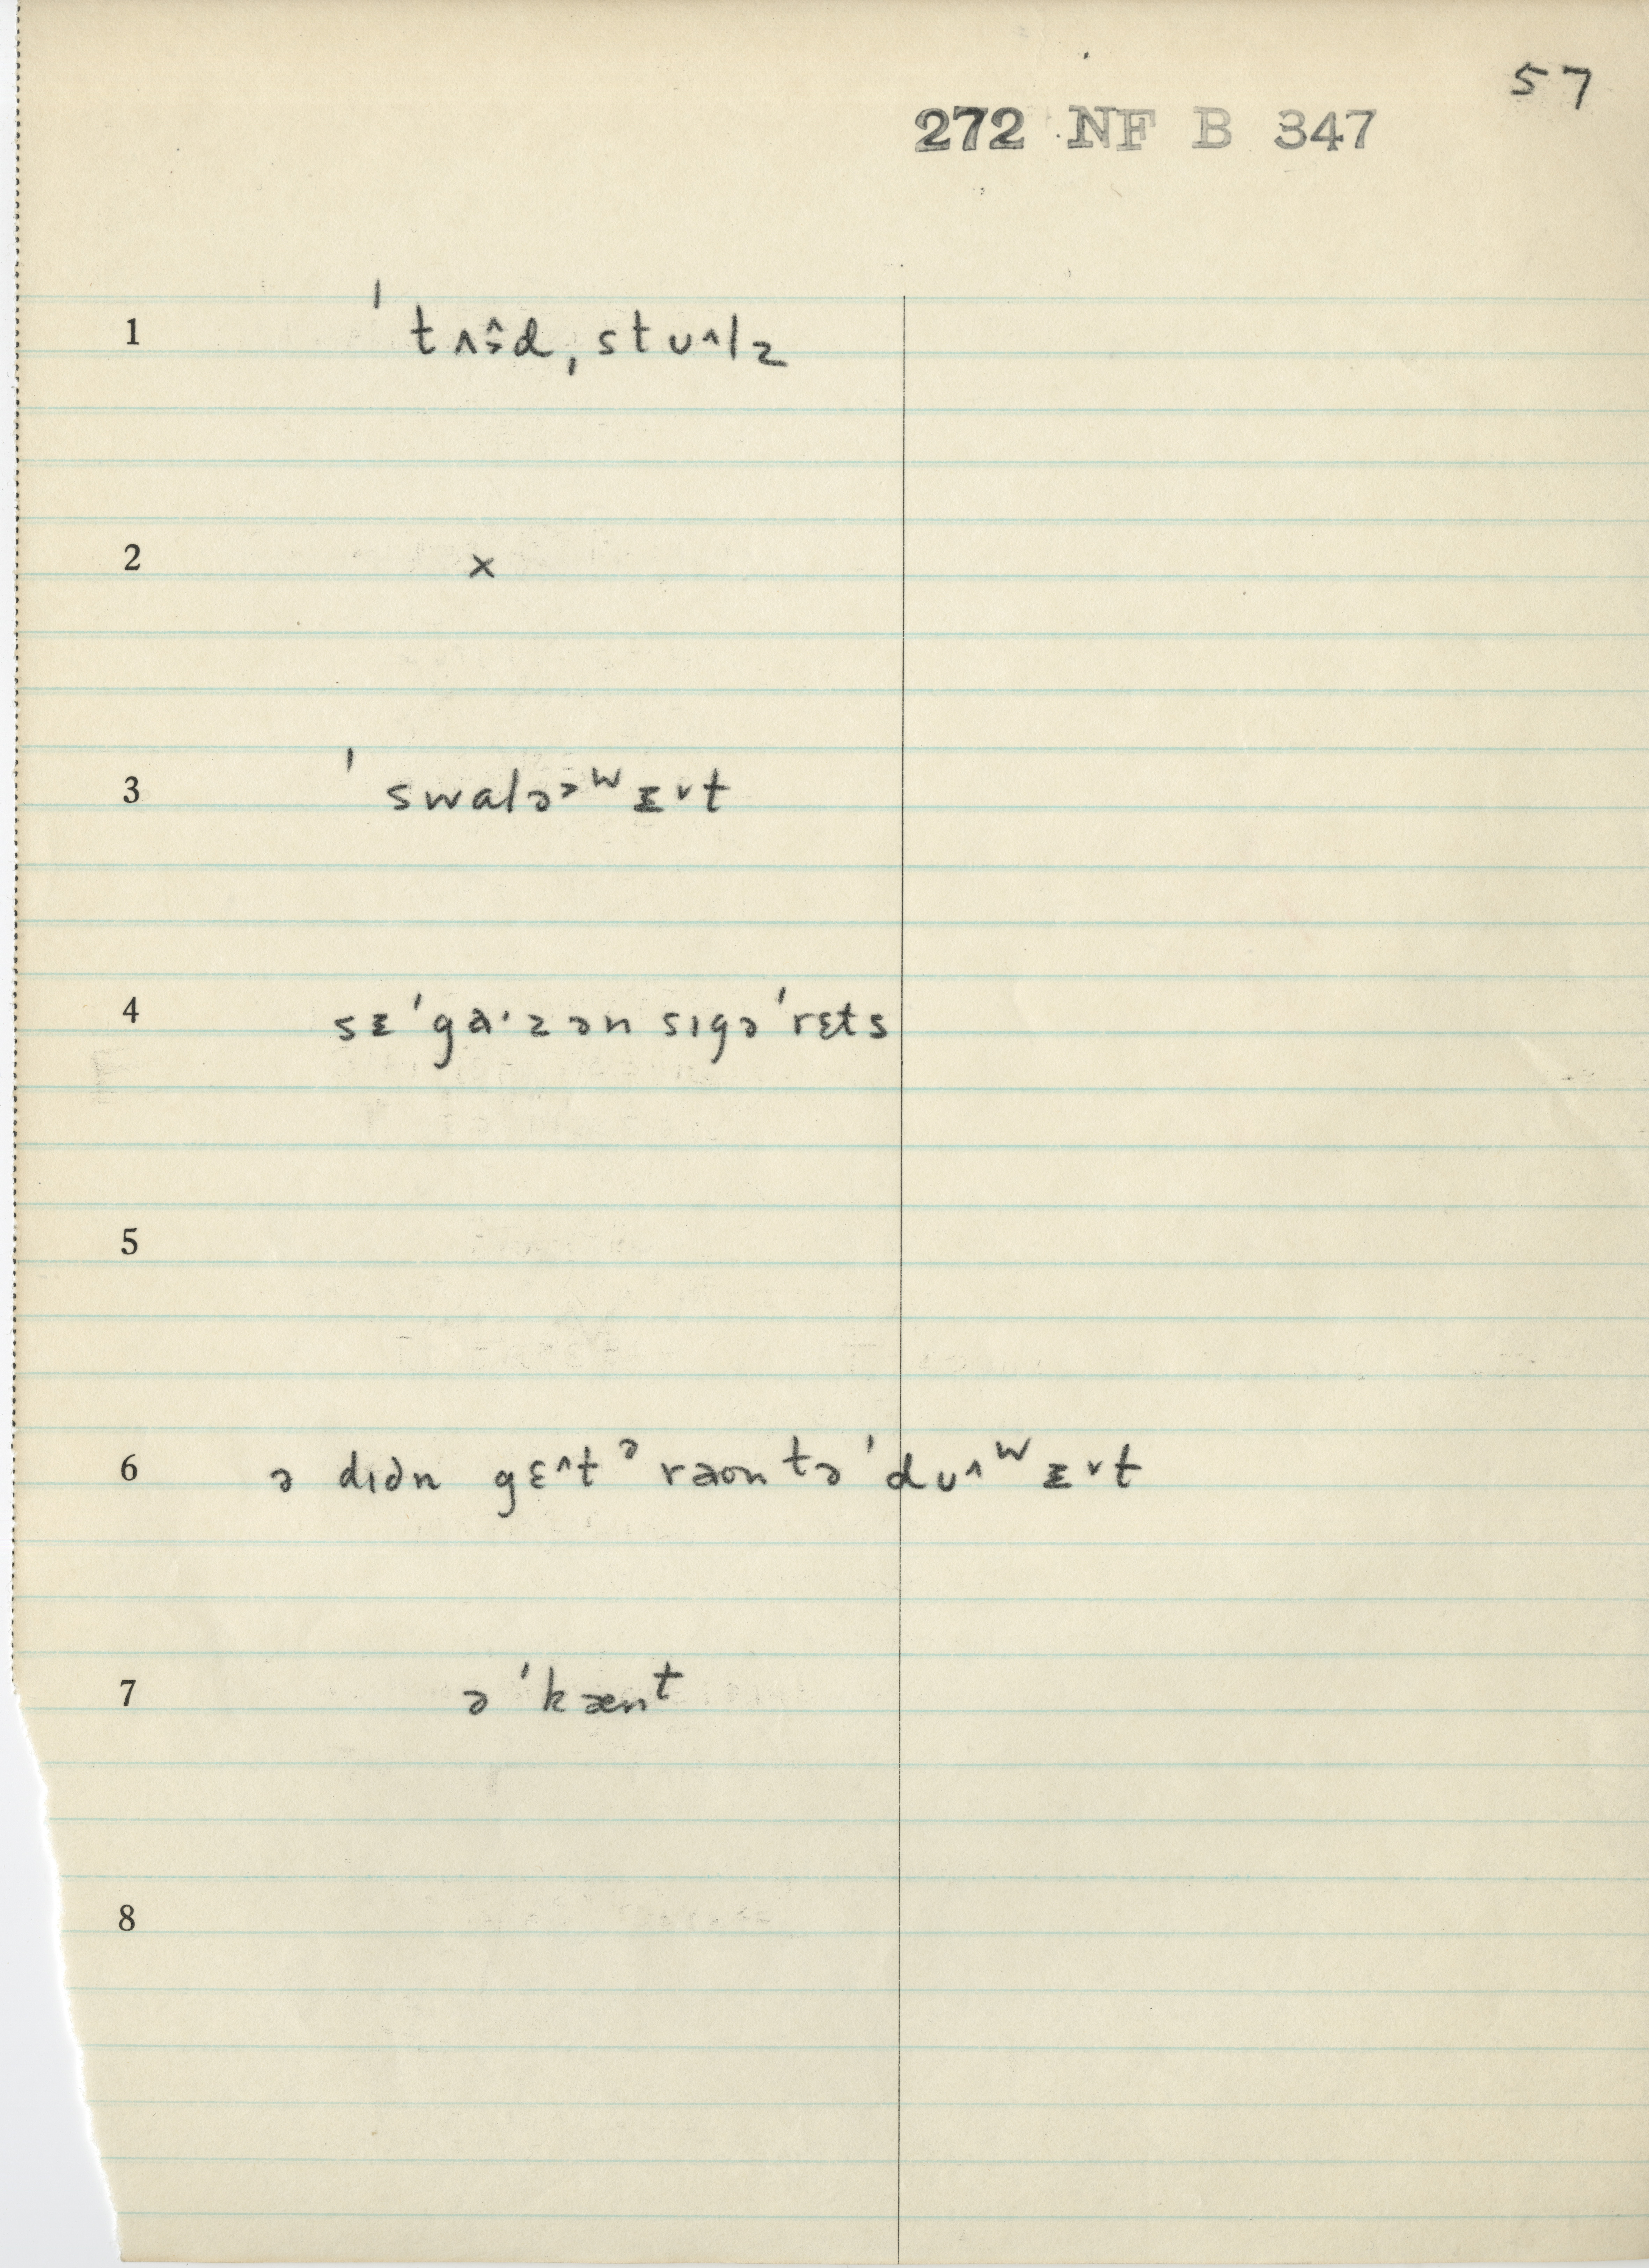 57
272 NF B 347
1 ˈtʌɜ̂d,stᴜ^lz
2 x
3 ˈswalə˃ʷᵻ˅t
4 sᵻˈga·zən sɪgəˈrɛts
5
6 ə dɪdn gɛ^tᵊraʊntəˈdᴜ^ʷᵻ˅t
7 əˈkænᵗ
8